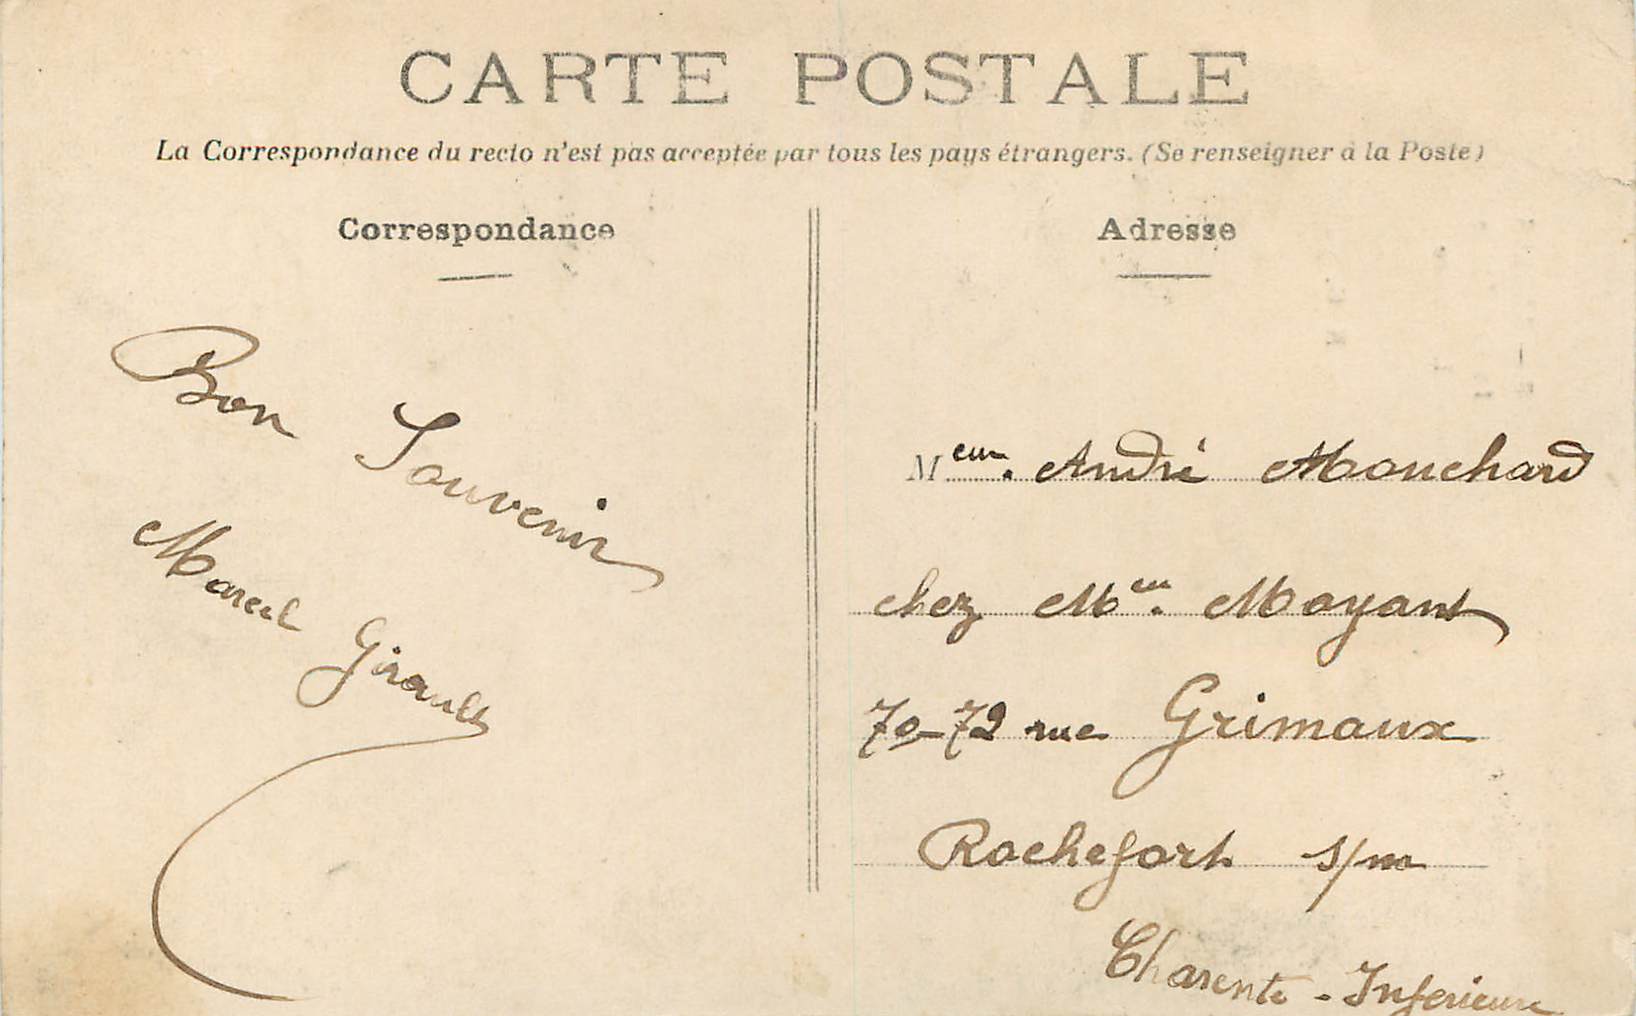 CARTE POSTALE
La Correspondance du recto n'est pas acceptée par tous les pays étrangers. (Se renseigner à la Poste)
Correspondance
Bon Souvenir
Marcel Girault
Adresse
Meur. André Mouchard
chez Meur. Moyant
70-72 rue Grimaux
Rochefort s/m
Charente-Inferieure